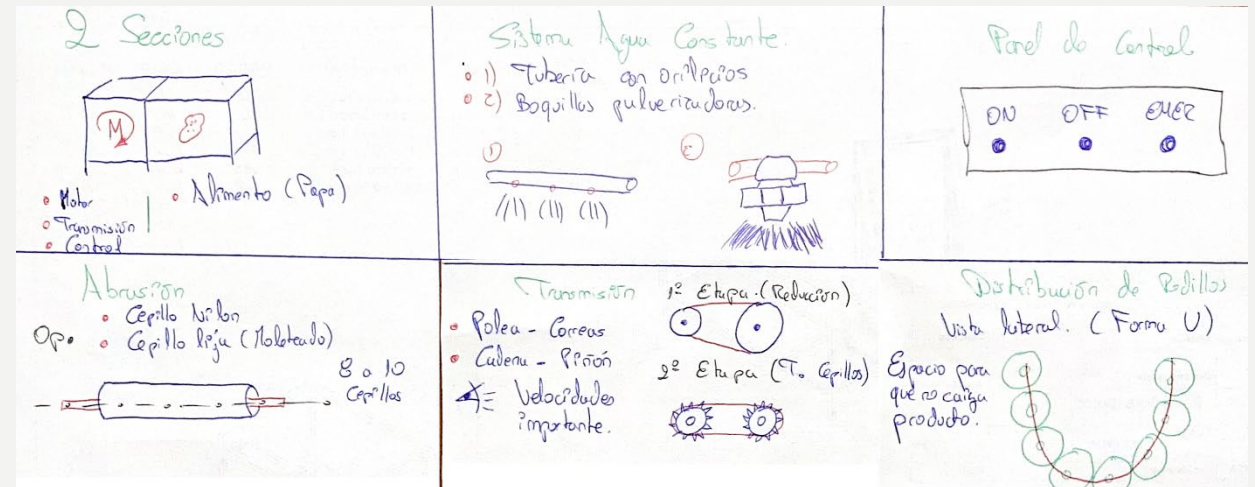 2 Secciones
M
• Motor
• Transmisión
• Control
• Alimento (Papa)
Sistema Agua Constante.
• 1) Tubería con orificios
• 2) Boquillas pulverizadoras.
1)
2)
Panel de Control
ON OFF EMER
Abrasión
Op.
• Cepillo Nilon
• Cepillo lija (Moleteado)
8 a 10
Cepillos
Transmisión
• Polea - Correas
• Cadena - Piñón
Velocidades
importante.
1º Etapa. (Reducción)
2º Etapa (T. Cepillos)
Distribución de Rodillos
Vista lateral. (Forma U)
Espacio para
que no caiga
producto.